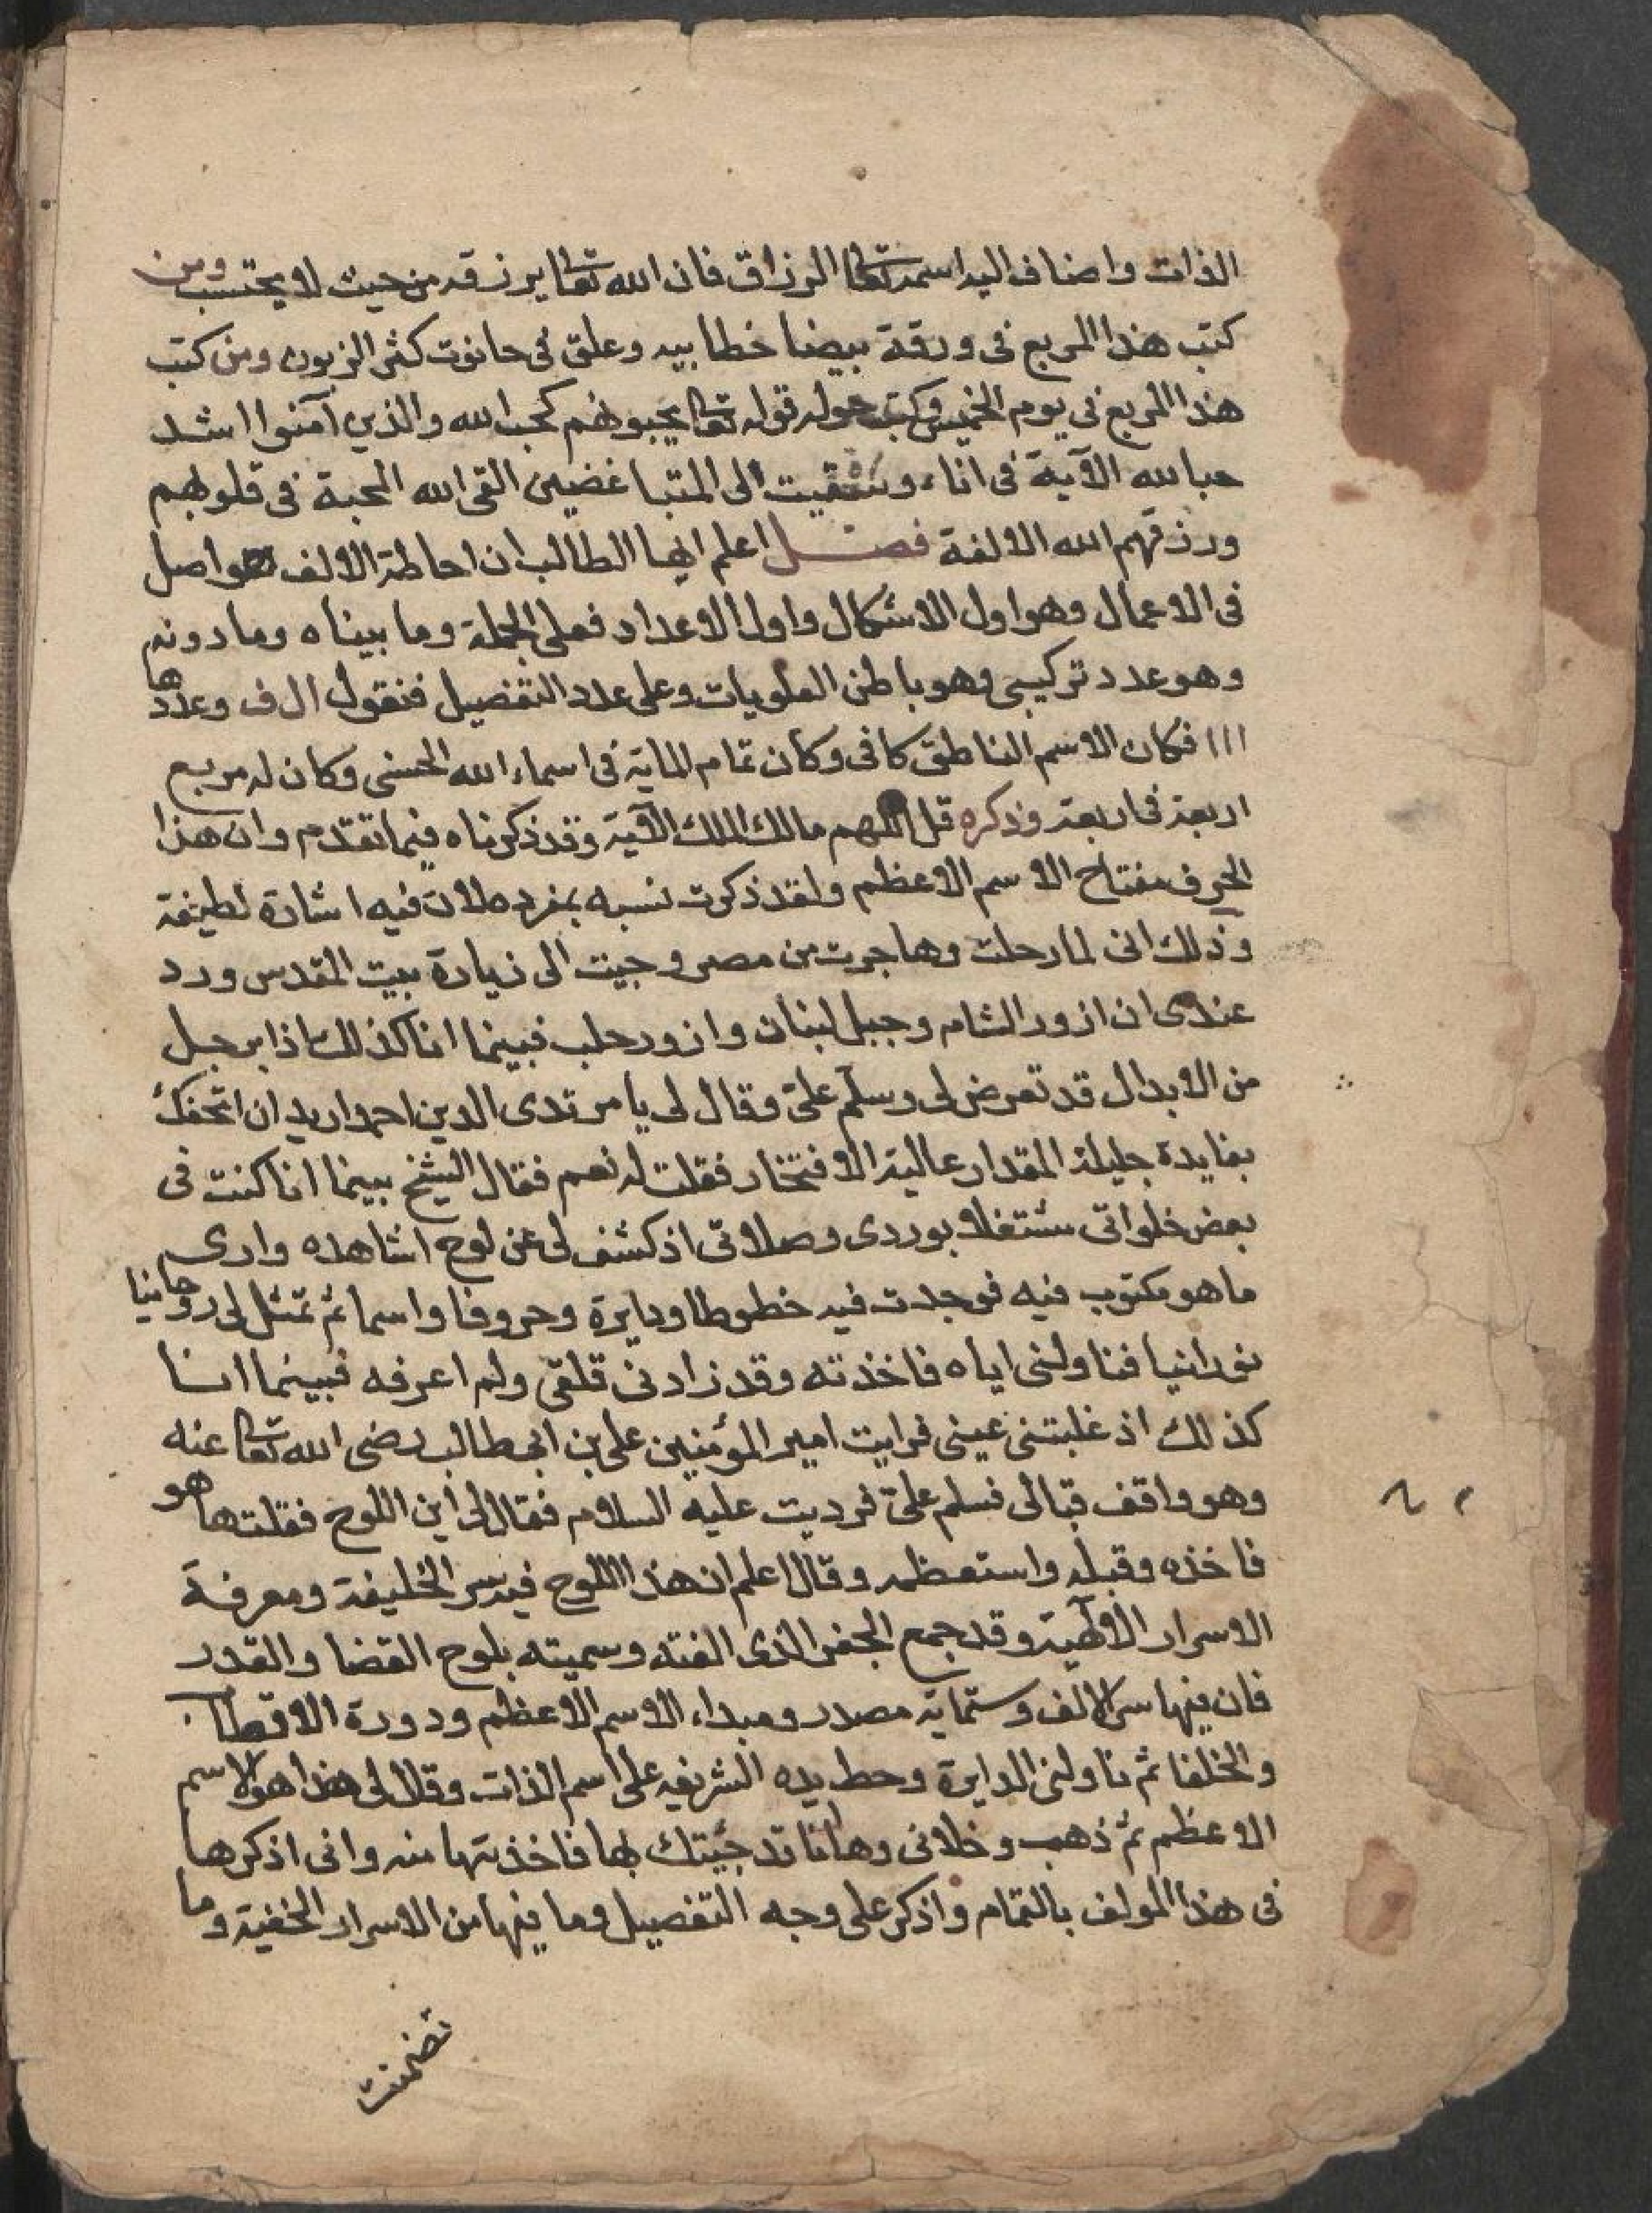 الذات واضاف اليه اسمه تعالى الرزاق فان الله تعالى يرزقه من حيث لا يحتسب ومن
كتب هذا المربع فى ورقة بيضا خطابيه وعلق فى حانوت كثر الزبون ومن كتب
هذا المربع فى يوم الخميس وكتب حوله قوله تعالى يحبونهم كحب الله والذين آمنوا اشد
حبا لله الآية فى اناء وسقيت الى المتباغضين القى الله المحبة فى قلوبهم
ورزقهم الله الالفة فصل اعلم ايها الطالب ان احاطة الالف هو اصل
فى الاعمال وهو اول الاشكال واول الاعداد فعلى الجملة وما بيناه وما دونه
وهو عدد تركيبى وهو باطن العلويات وعلى عدد التفضيل فنقول ال ف وعددها
١١١ فكان الاسم الناطق كافى وكان تمام الماية فى اسماء الله الحسنى وكان له مربع
اربعة فى اربعة وذكره قل اللهم مالك الملك الآية وقد ذكرناه فيما تقدم وان هذا
الحرف مفتاح الاسم الاعظم ولقد ذكرت نسبه بمفرده لان فيه اشارة لطيفة
وذلك انى لما رحلت وهاجرت من مصر وجيت الى زيارة بيت المقدس ورد
عندى ان ازور الشام وجبل لبنان وازور حلب فبينما انا كذلك اذا برجل
من الابدال قد تعرض لى وسلم علىّ وقال لى يا مرتدى الدين احمد اريد ان اتحفك
بفايدة جليلة المقدار عالية الافتخار فقلت له نعم فقال الشيخ بينما انا كنت فى
بعض خلواتى مشتغلا بوردى وصلاتى اذ كشف لى عن لوح اشاهده وارى
ما هو مكتوب فيه فوجدت فيه خطوطا ودايرة وحروفا واسما ثم تمثل لى روحانيا
نورانيا فناولنى اياه فاخذته وقد زاد نى قلقى ولم اعرفه فبينما انا
كذلك اذ غلبتنى عينى فرايت امير المؤمنين على بن ابى طالب رضى الله تعالى عنه
وهو واقف قبالى فسلم علىّ فرديت عليه السلام فقال لى اين اللوح فقلت ها هو
فاخذه وقبله واستعظمه وقال اعلم ان هذا اللوح فيه سر الخليفة ومعرفة
الاسرار الالهية وقد جمع الجفر الذى الفته وسميته بلوح القضا والقدر
فان فيها سر الالف وستماية مصدر ومبداء الاسم الاعظم ودورة الاقطاب
والخلفا ثم ناولنى الدايرة وحط يده الشريفه على اسم الذات وقال لى هذا هو الاسم
الاعظم ثم ذهب وخلانى وها انا قد جئيتك بها فاخذتها منه وانى اذكرها
فى هذا المولف بالتمام واذكر على وجه التفصيل وما فيها من الاسرار الخفية وما
تضمنت